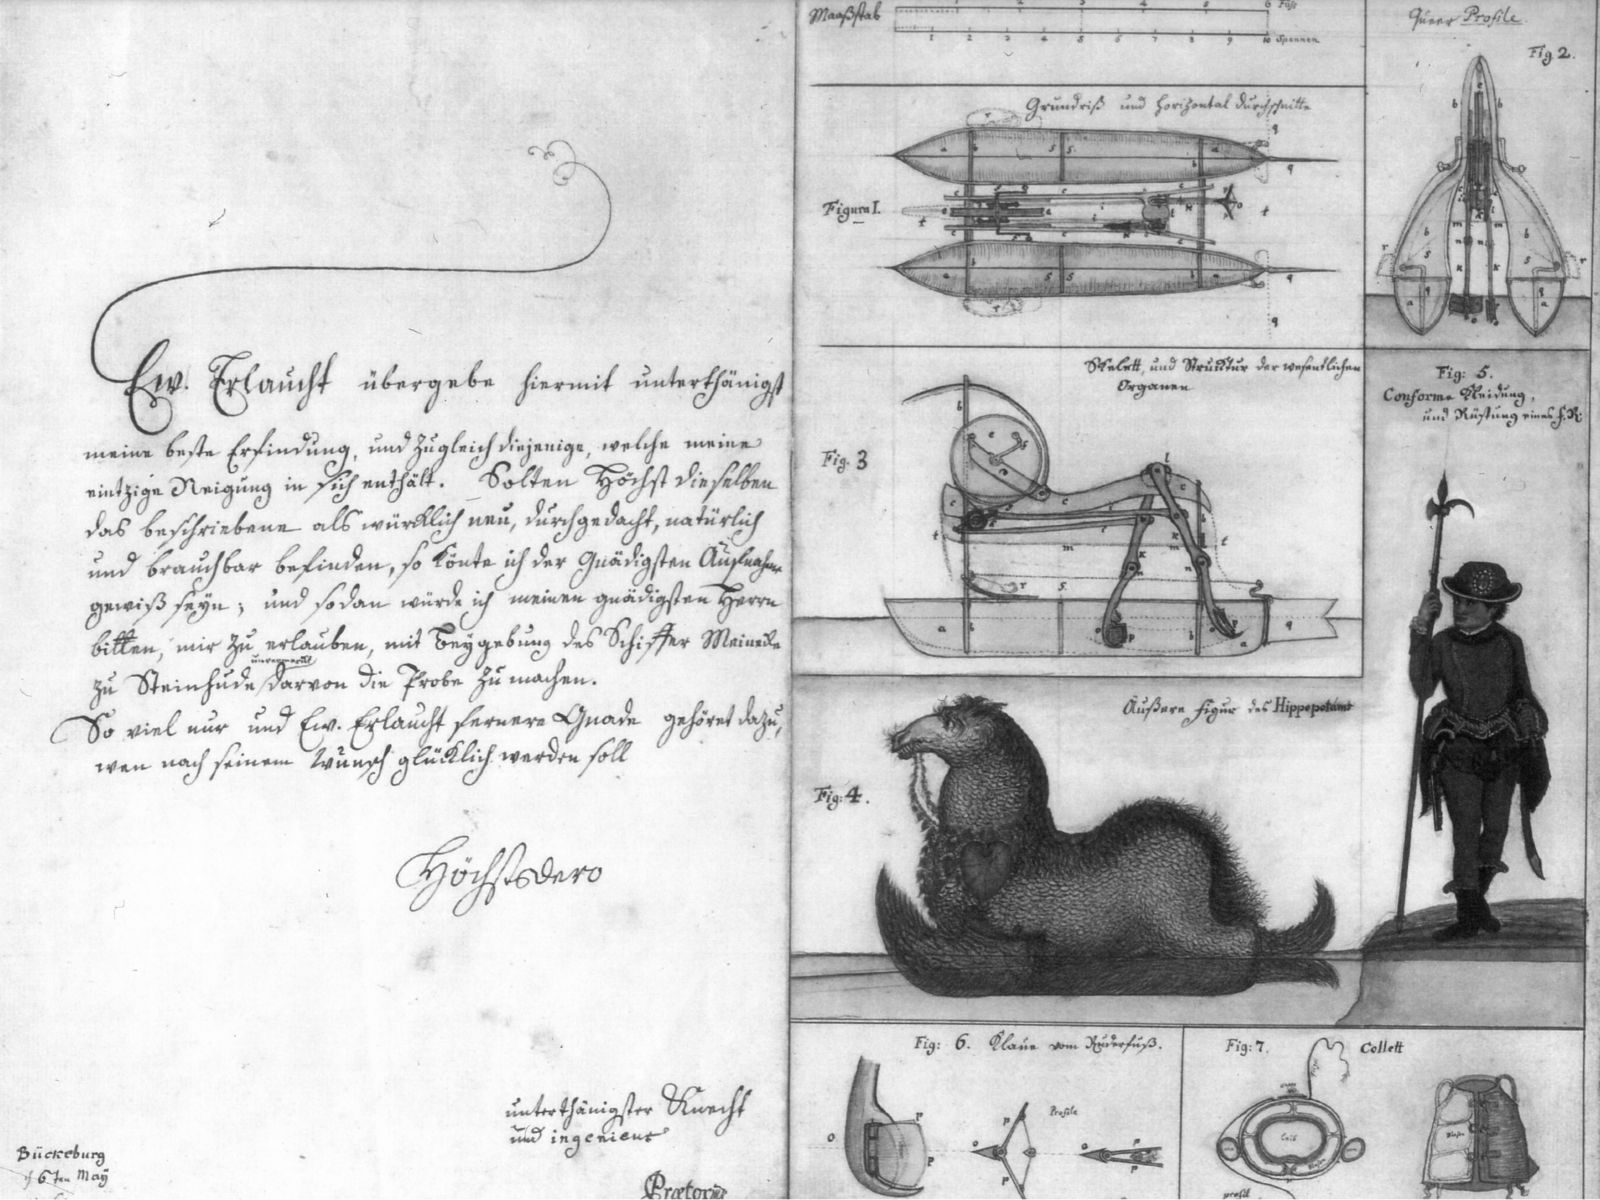 Ew. Erlaucht übergebe hiermit unterthänigst
meine beste Erfindung, und zugleich diejenige, welche meine
eintzige Neigung in sich enthält. Solten Höchst dieselben
das beschriebene als würcklich neu, durchgedacht, natürlich
und brauchbar befinden, so könte ich der Gnädigsten Aufnahme
gewiß seyn; und sodan würde ich meinen gnädigsten Herrn
bitten, mir zu erlauben, mit Beygebung des Schiffer Meinecke
zu Steinhude darvon die Probe zu machen.
So viel nur und Ew. Erlaucht fernere Gnade gehöret dazu,
wen nach seinem Wunsch glücklich werden soll
Höchstdero
unterthänigster Knecht
und ingenieur
Prætorius
Bückeburg
6ten May
Maaßstab
1 2 3 4 5 6 Fuß
1 2 3 4 5 6 7 8 9 10 Spannen
Grundriß und horizontal durchschnitte
Figura I.
Queer Profile
Fig 2.
Skelett, und Strucktur der wesentlichen
Organen
Fig. 3
Äußere figur des Hippopotams
Fig: 4.
Fig: 5.
Conforme Kleidung,
und Rüstung eines
Fig: 6. Klaue vom Ruderfuß.
Profile
Fig: 7. Collett
profil